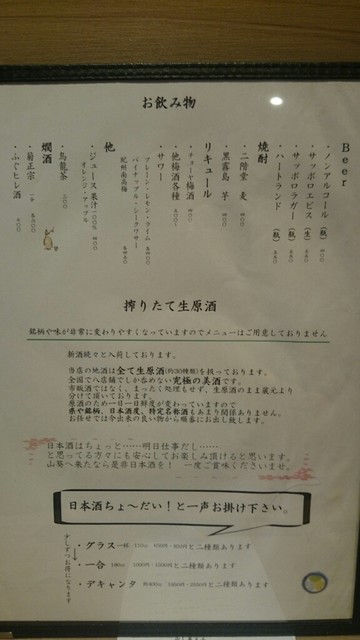 お飲み物
Beer
・ノンアルコール（瓶）
・サッポロエビス（生）
・サッポロラガー（瓶）
・ハートランド（瓶）
焼酎
・二階堂 麦
・黒霧島 芋
リキュール
・チョーヤ梅酒
・他梅酒各種
・サワー
プレーン・レモン・ライム
パイナップル・シークワサー
紀州南高梅
他
・ジュース果汁100%
オレンジ・アップル
・烏龍茶
燗酒
・菊正宗
・ふぐヒレ酒
搾りたて生原酒
銘柄や味が非常に変わりやすくなっていますのでメニューはご用意しておりません
新酒続々と入荷しております。
当店の地酒は全て生原酒(約30種類)を扱っております。
全国で八店舗でしか呑めない究極の美酒です。
市販酒ではなく、まったく処理もせず、生原酒のまま蔵元より
分けて頂いております。
原酒のため一日一日鮮度が変わっていますので
県や銘柄、日本酒度、特定名称酒もあまり関係ありません。
お任せでは今出来の良い物から順番にお出し致します。
日本酒はちょっと……明日仕事だし……
と思ってる方々にも安心してお楽しみ頂けると思います。
山葵へ来たなら是非日本酒を！ 一度ご賞味くださいませ。
日本酒ちょ～だい！と一声お掛け下さい。
少しずつお得になります
・グラス一杯 と二種類あります
・一合 180cc と二種類あります
・デキャンタ と二種類あります